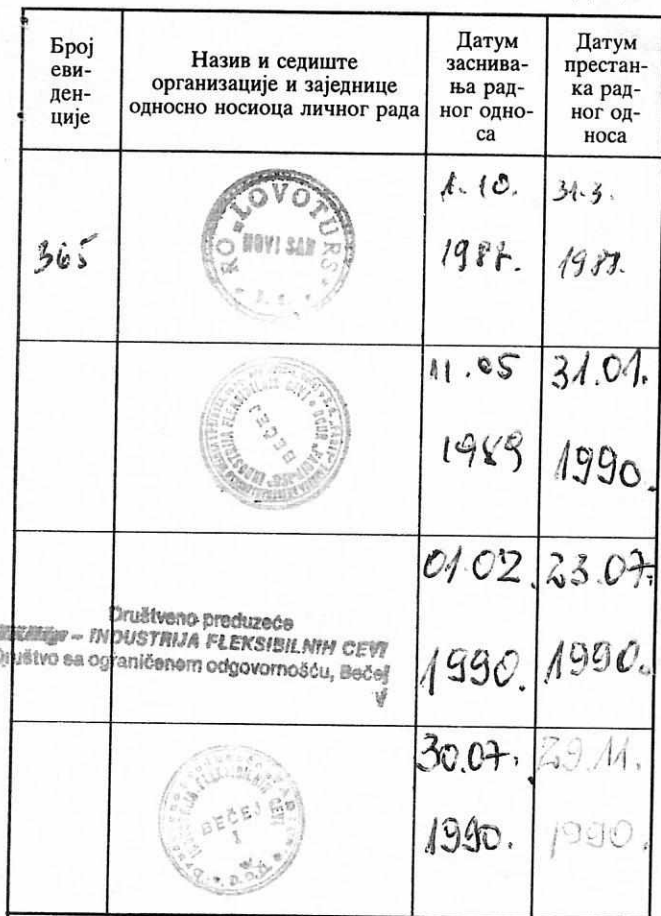 Број
еви-
ден-
ције
Назив и седиште
организације и заједнице
односно носиоца личног рада
Датум
заснива-
ња рад-
ног одно-
са
Датум
престан-
ка рад-
ног од-
носа
365
RO "LOVOTURS"
NOVI SAD
1.10.
31.3.
11.05
1989
31.01.
1990.
INDUSTRIJA FLEKSIBILNIH CEVI
BEČEJ
01.02.
1990.
23.07.
1990.
Društveno preduzeće
– INDUSTRIJA FLEKSIBILNIH CEVI
Društvo sa ograničenom odgovornošću, Bečej
30.07.
1990.
29.11.
1990.
FLEKSIBILNIH CEVI
BEČEJ
1